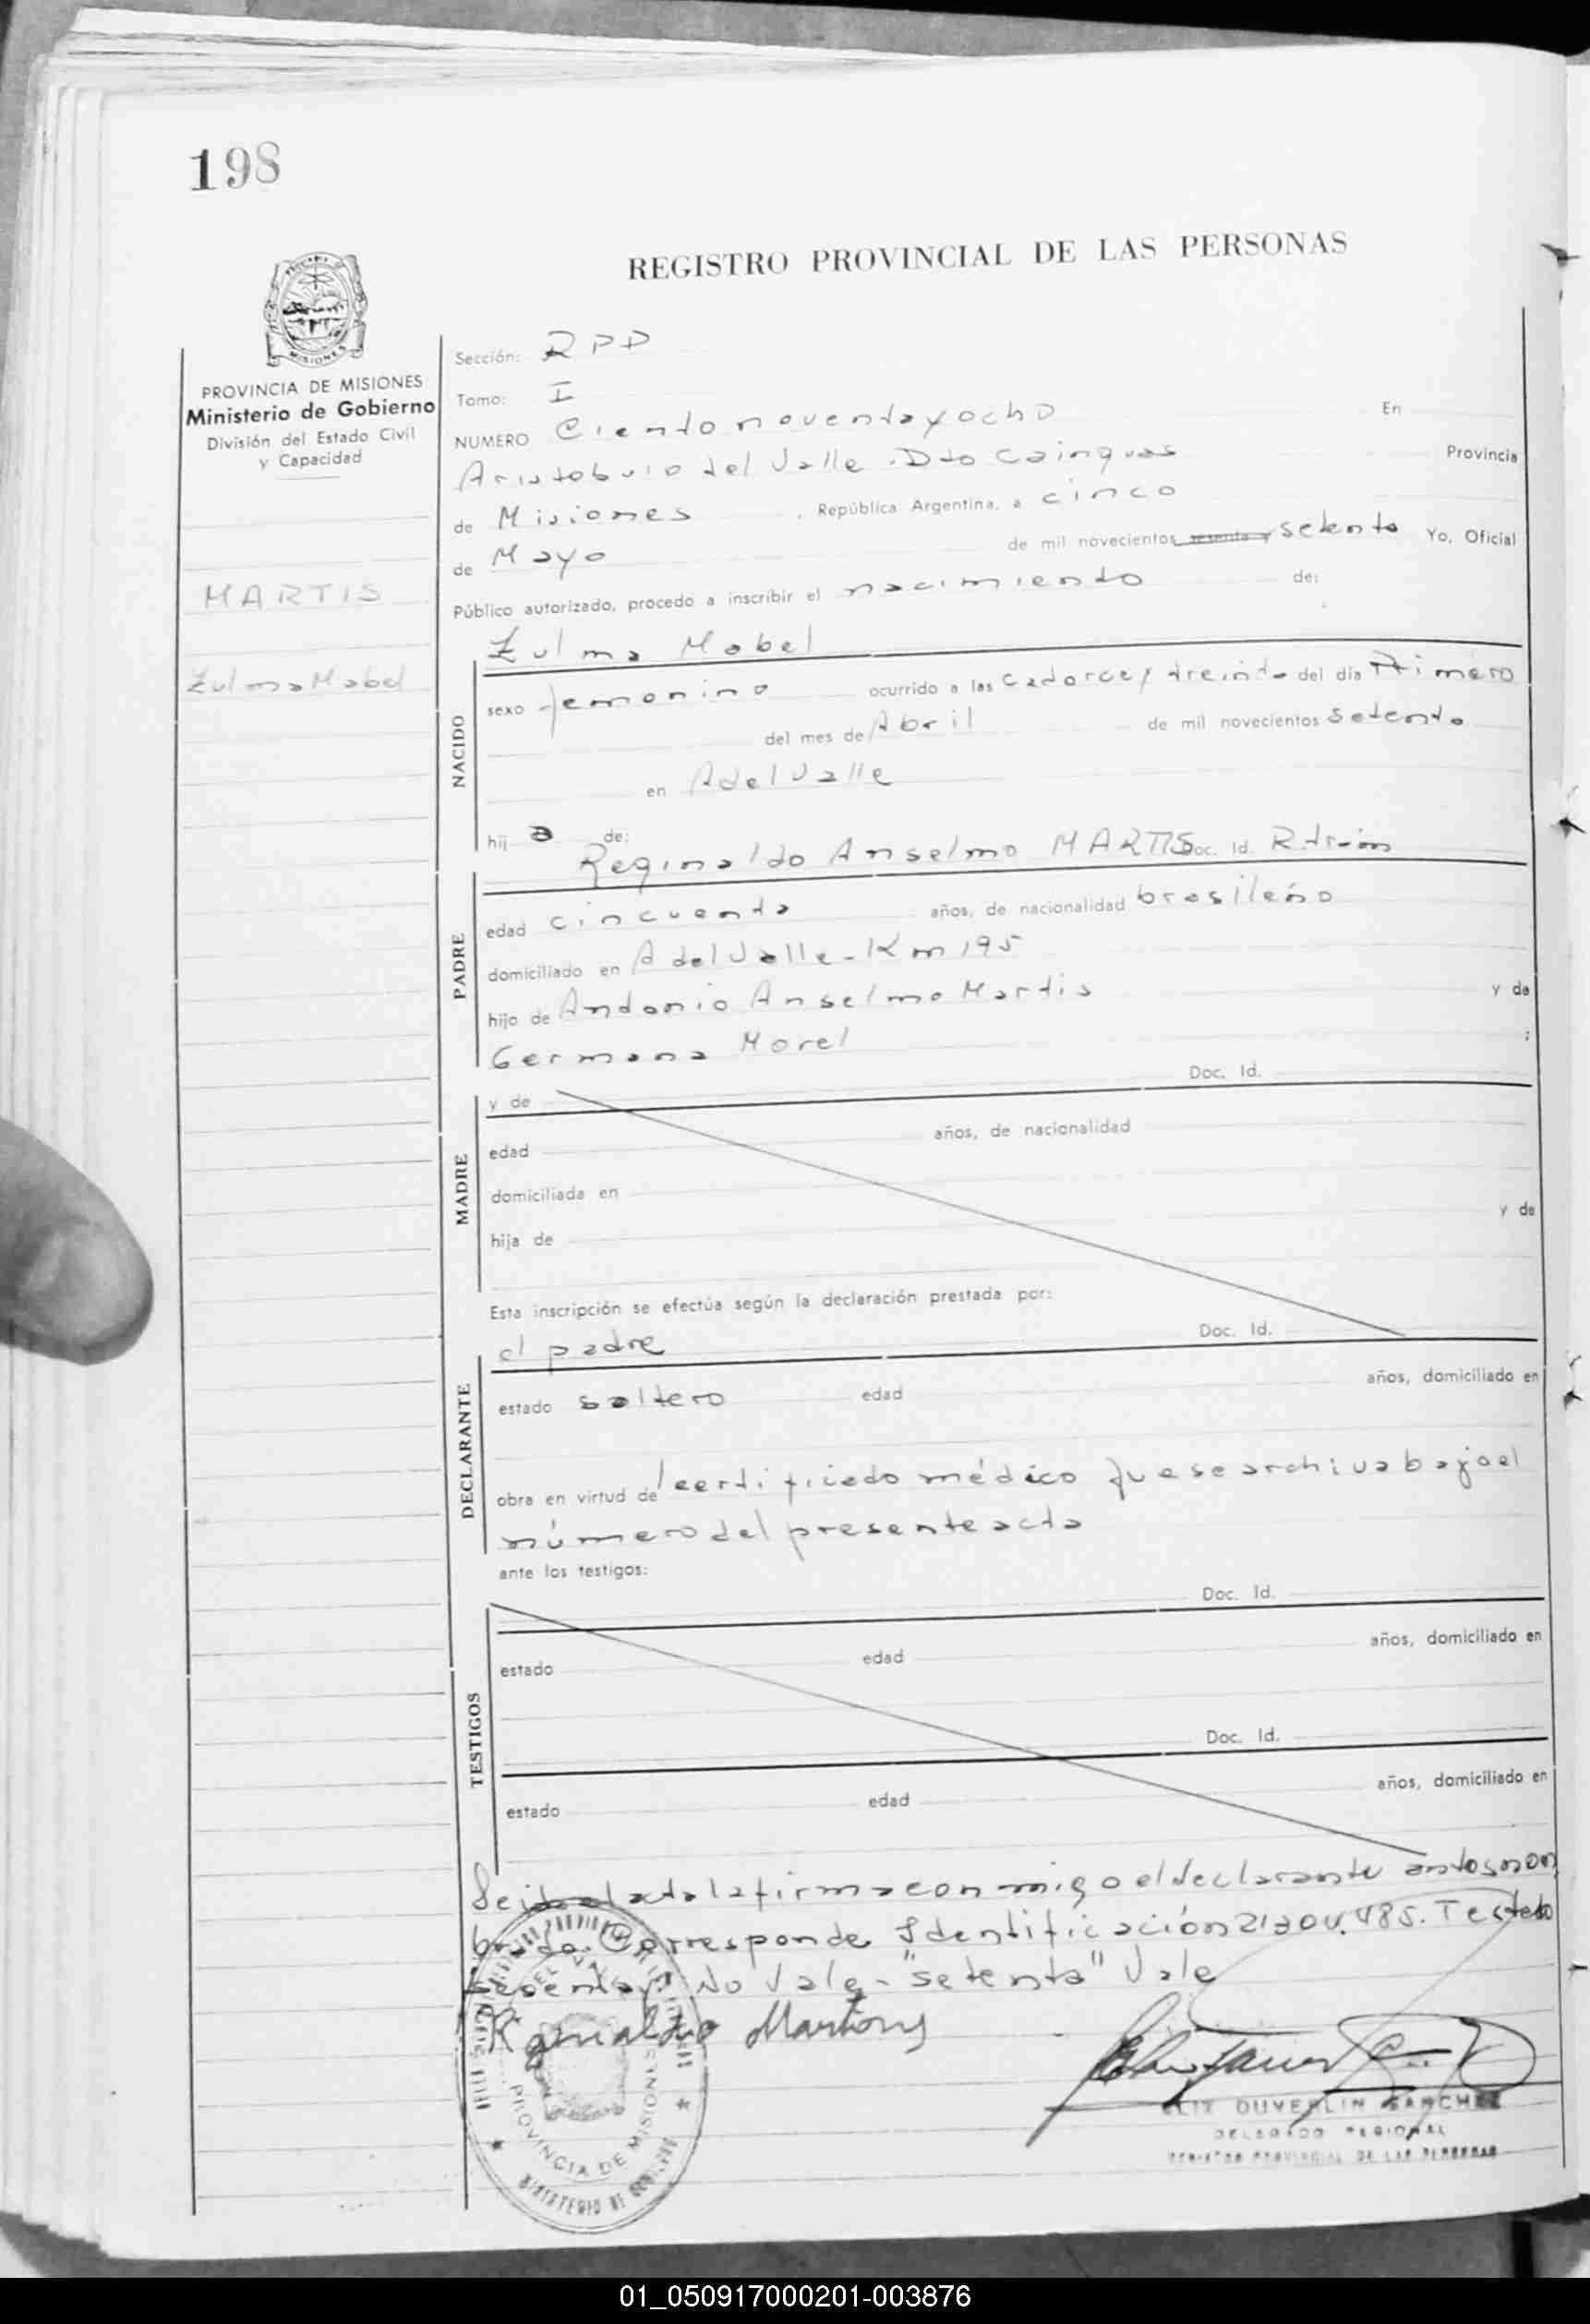 198
REGISTRO PROVINCIAL DE LAS PERSONAS
MISIONES
PROVINCIA DE MISIONES
Ministerio de Gobierno
División del Estado Civil
y Capacidad
MARTIS
Zulma Mabel
Sección: RPD
Tomo: I
NUMERO Ciento noventa y ocho En
Aristobulo del Valle. Dto Cainguas Provincia
de Misiones, República Argentina, a cinco
de Mayo de mil novecientos sesenta y setenta Yo, Oficial
Público autorizado, procedo a inscribir el nacimiento de:
Zulma Mabel
NACIDO
sexo femenino ocurrido a las catorce y treinta del día Primero
del mes de Abril de mil novecientos setenta
en A del Valle
hij a de:
Reginaldo Anselmo MARTIS Doc. Id.
PADRE
edad cincuenta años, de nacionalidad brasileño
domiciliado en A del Valle - Km 195
hijo de Antonio Anselmo Martis y de
Germana Morel ;
MADRE
y de Doc. Id.
edad años, de nacionalidad
domiciliada en
hija de y de
Esta inscripción se efectúa según la declaración prestada por:
el padre Doc. Id.
DECLARANTE
estado soltero edad años, domiciliado en
obra en virtud de l certificado médico que se archiva bajo el
número del presente acta
ante los testigos:
TESTIGOS
Doc. Id.
estado edad años, domiciliado en
Doc. Id.
estado edad años, domiciliado en
la firma conmigo el declarante antes nom
brado. Corresponde Identificación Testado
sesenta y No Vale - "setenta" Vale
DUVERLIN SANCHEZ
DELEGADO REGIONAL
REGISTRO PROVINCIAL DE LAS PERSONAS
PROVINCIA DE MISIONES
MINISTERIO DE
01_050917000201-003876